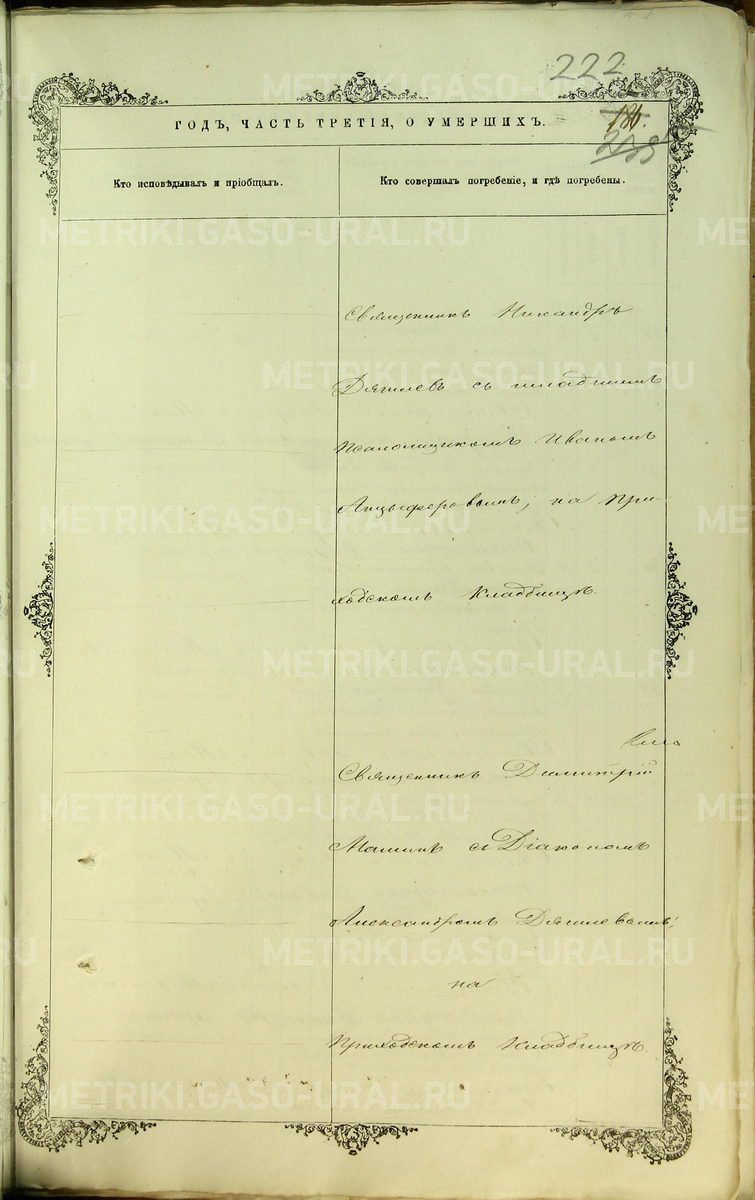 222
186.
ГОДЪ, ЧАСТЬ ТРЕТІЯ, О УМЕРШИХЪ.
Кто исповѣдывалъ и пріобщалъ.
Кто совершалъ погребеніе, и гдѣ погребены.
Священникъ Никандръ
Дягилевъ съ младшимъ
Псаломщикомъ Иваномъ
Анцыферовымъ, на При-
ходскомъ Кладбищѣ.
Священникъ Димитрій
Маминъ съ Діакономъ
Александромъ Дягилевымъ,
на
Приходскомъ Кладбищѣ.
METRIKI.GASO-URAL.RU